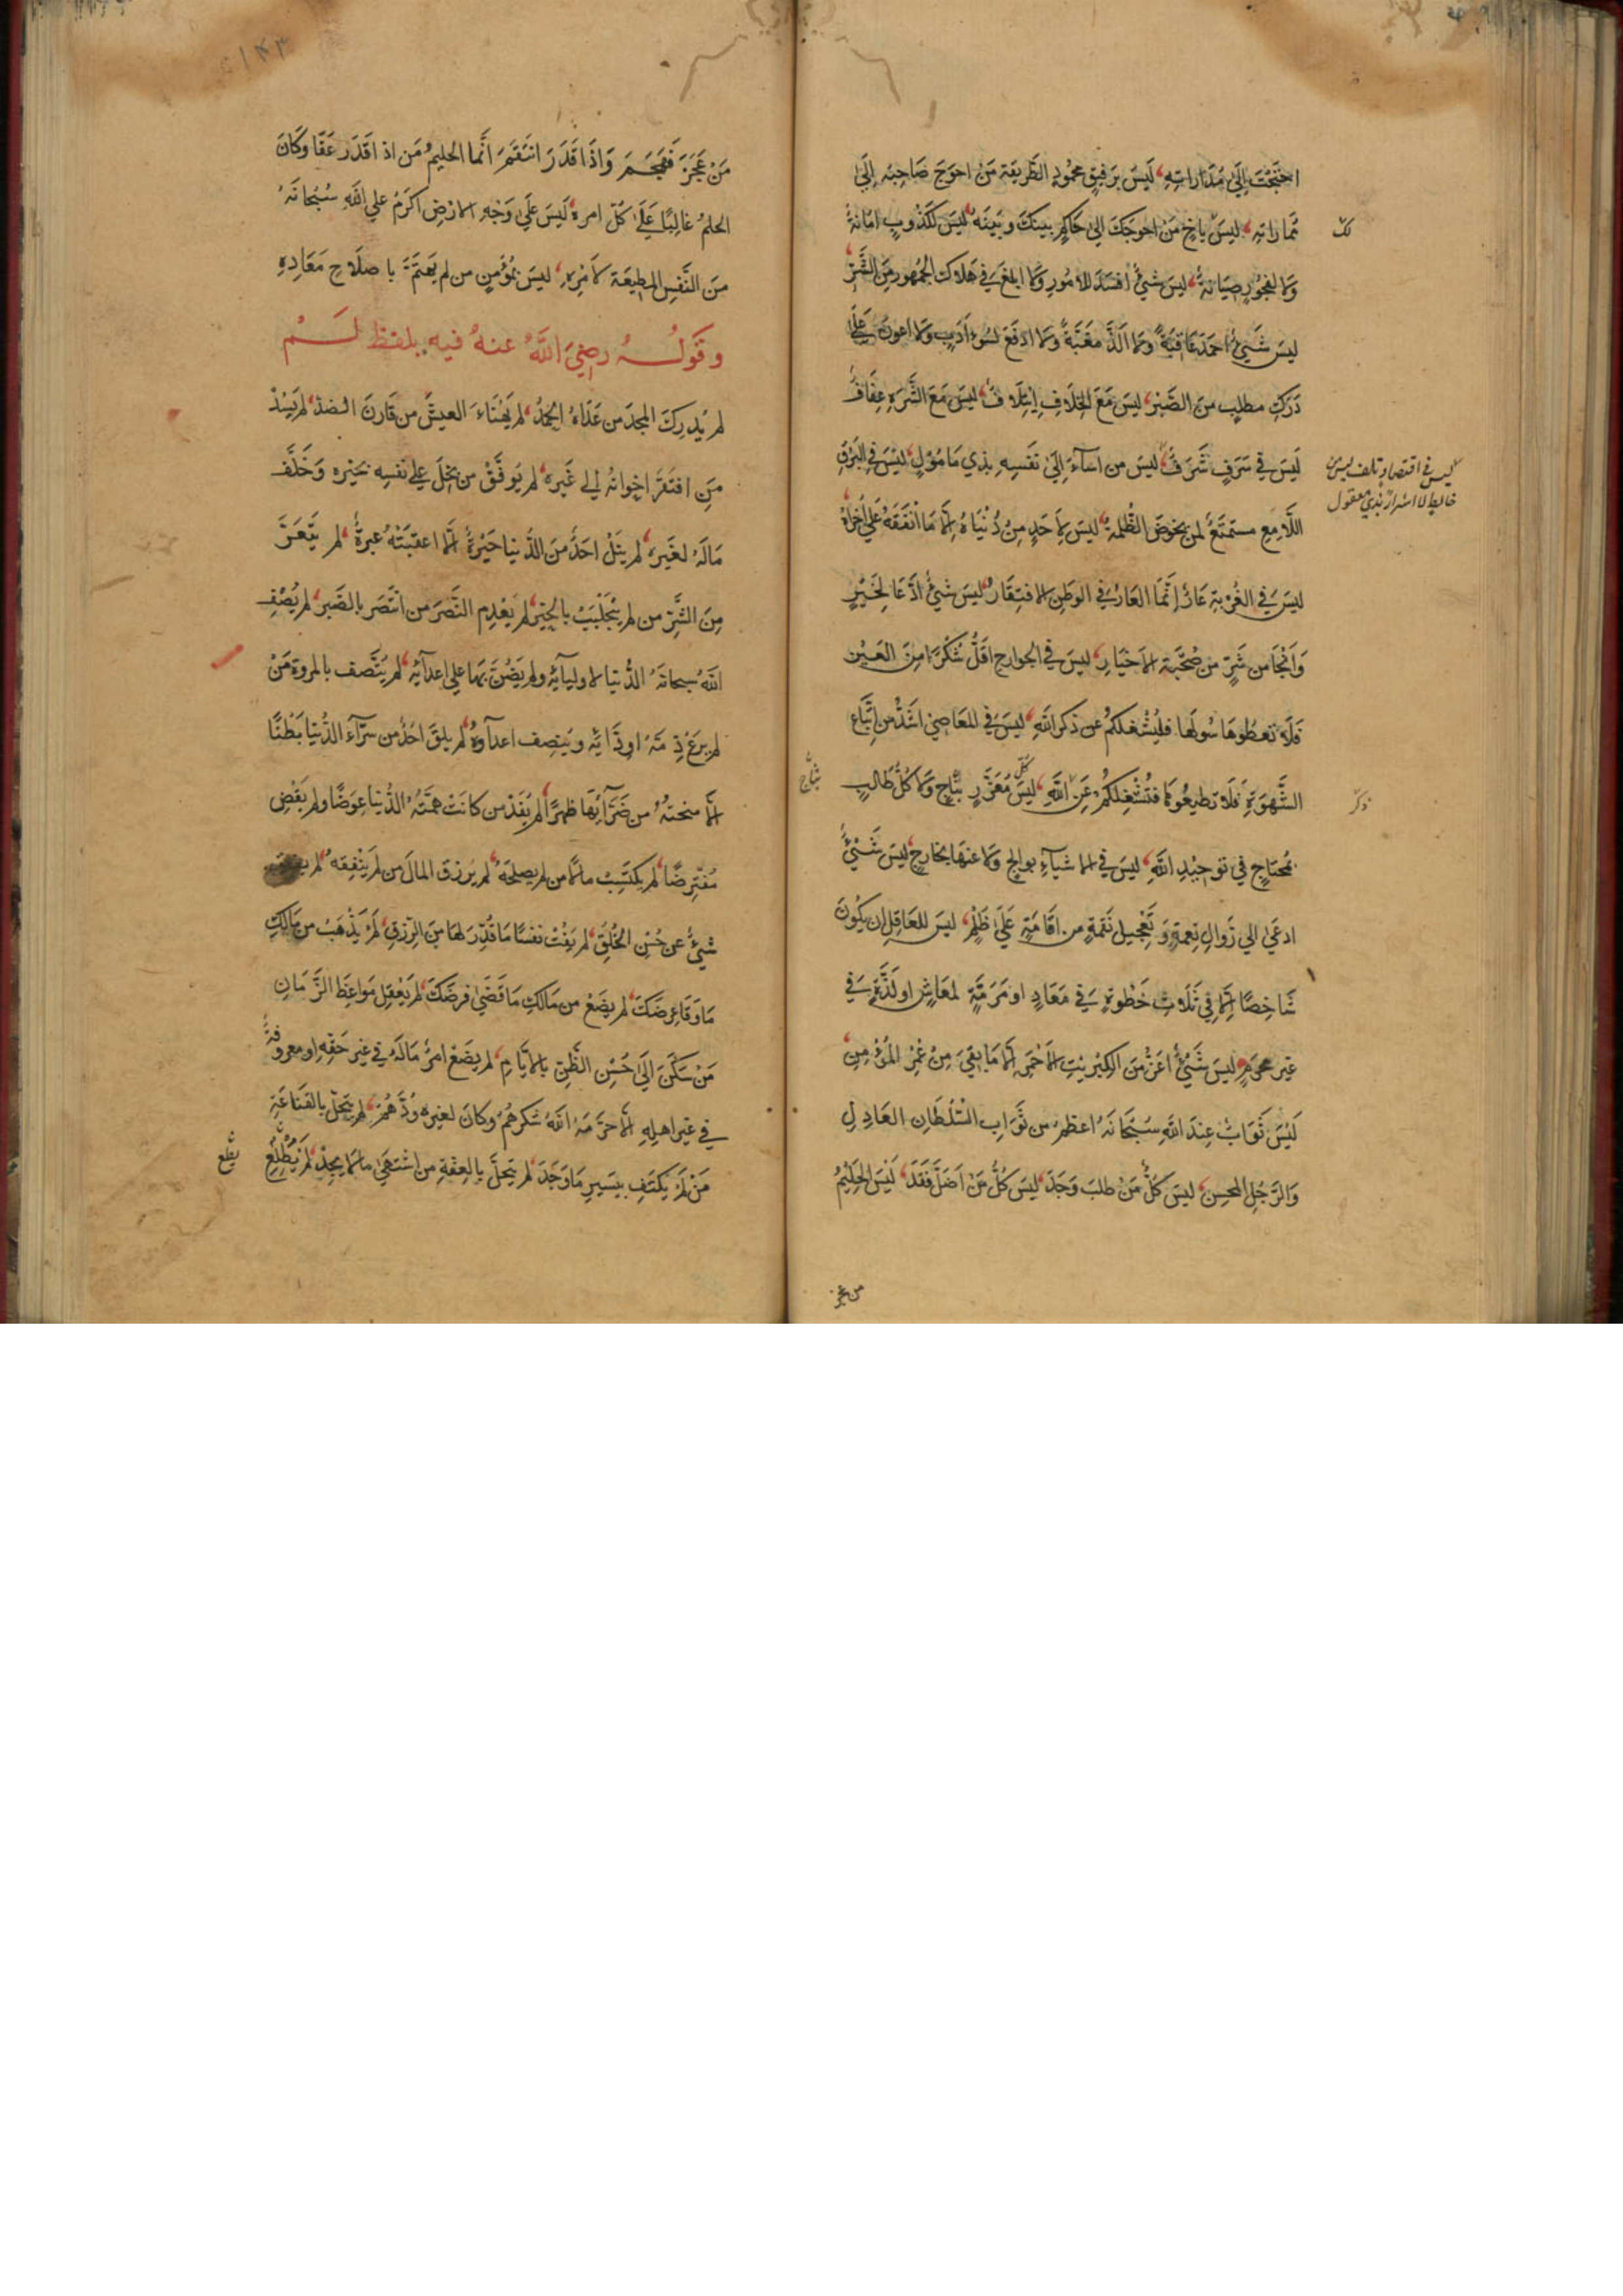 احتجت إلى مداراته، ليس برفيق محمود الطريقة من احوج صاحبه إلى
مماراته، ليس باخ من احوجك الى حاكم بينك وبينه، ليس لكذوب امانة
ولا لفجور صيانة، ليس شيئ افسد للامور ولا ابلغ في هلاك الجمهور من الشر
ليس شيئ احمد عاقبة ولا الذ مغبة ولا ادفع لسوء أدب ولا اعون على
درك مطلب من الصبر، ليس مع الخلاف إئتلاف، ليس مع الشره عفاف
ليس في سرف شرف، ليس من اساء إلى نفسه بذي مامول، ليس في البرق
اللامع مستمتع لمن يخوض الظلمة، ليس لاحد من دنياه إلا ما انفقه على أخراه
ليس في الغربة عار إنما العار في الوطن الافتقار، ليس شيئ ادعا لخير
وانجا من شر من صحبة الاخيار، ليس في الجوارح اقل شكرا من العين
فلا تعطوها سولها فليشغلكم عن ذكر الله، ليس في المعاصي اشد من اتباع
الشهوة فلا تطيعوها فتشغلكم عن الله، ليس كل مغرر بناج ولا كل طالب
بمحتاج في توحيد الله، ليس في الاشياء بوالج ولا عنها بخارج، ليس شيئ
ادعى الى زوال نعمة وتعجيل نقمة من اقامة على ظلم، ليس للعاقل ان يكون
شاخصا إلا في ثلاث خطوة في معاد او مرمة لمعاش او لذة في
غير محرم، ليس شيئ اعز من الكبريت الاحمر الا ما بقي من عمر المؤمن
ليس ثواب عند الله سبحانه اعظم من ثواب السلطان العادل
والرجل المحسن، ليس كل من طلب وجد، ليس كل من اضل فقد، ليس الحليم
من عجز
لك
ليس في اقتصاد تلف ليس من
خالط الاشرار بذي معقول
ذكر
بناج
۱۴۳
من عجز فهجم واذا قدر انتقم انما الحليم من اذا قدر عفا وكان
الحلم غالبا على كل امره، ليس على وجه الارض اكرم على الله سبحانه
من النفس المطيعة لامره، ليس بمؤمن من لم يهتم باصلاح معاده
وقوله رضي الله عنه فيه بلفظ لم
لم يدرك المجد من عداه الحمد، لم يهناء العيش من قارن الضد، لم يسد
من افتقر اخوانه الي غيره، لم يوفق من بخل على نفسه بخيره وخلف
ماله لغيره، لم ينل احد من الدنيا حبرة إلا اعقبته عبرة، لم يتعر
من الشر من لم يتجلبب بالخير، لم يعدم النصر من انتصر بالصبر، لم يصف
الله سبحانه الدنيا لاوليائه ولم يضن بها على اعدائه، لم يتصف بالمروة من
لم يرع ذمة اودائه وينصف اعداوه، لم يلق احد من سراء الدنيا بطنا
الا منحته من ضرائها ظهرا، لم يفد من كانت همته الدنيا عوضا ولم يقض
مفترضا، لم يكتسب مالا من لم يصلحه، لم يرزق المال من لم ينفقه، لم
شيئ عن حسن الخلق، لم يفت نفسا ما قدر لها من الرزق، لم يذهب من مالك
ما وقا عرضك، لم يضع من مالك ما قضى فرضك، لم يعقل مواعظ الزمان
من سكن الى حسن الظن بالايام، لم يضع امرئ ماله في غير حقه او معروفه
في غير اهله الا حرمه الله شكرهم وكان لغيره ودهم، لم يتحل بالقناعة
من لم يكتف بيسير ما وجد، لم يتحل بالعفة من اشتهى ما لا يجد، لم يطلع